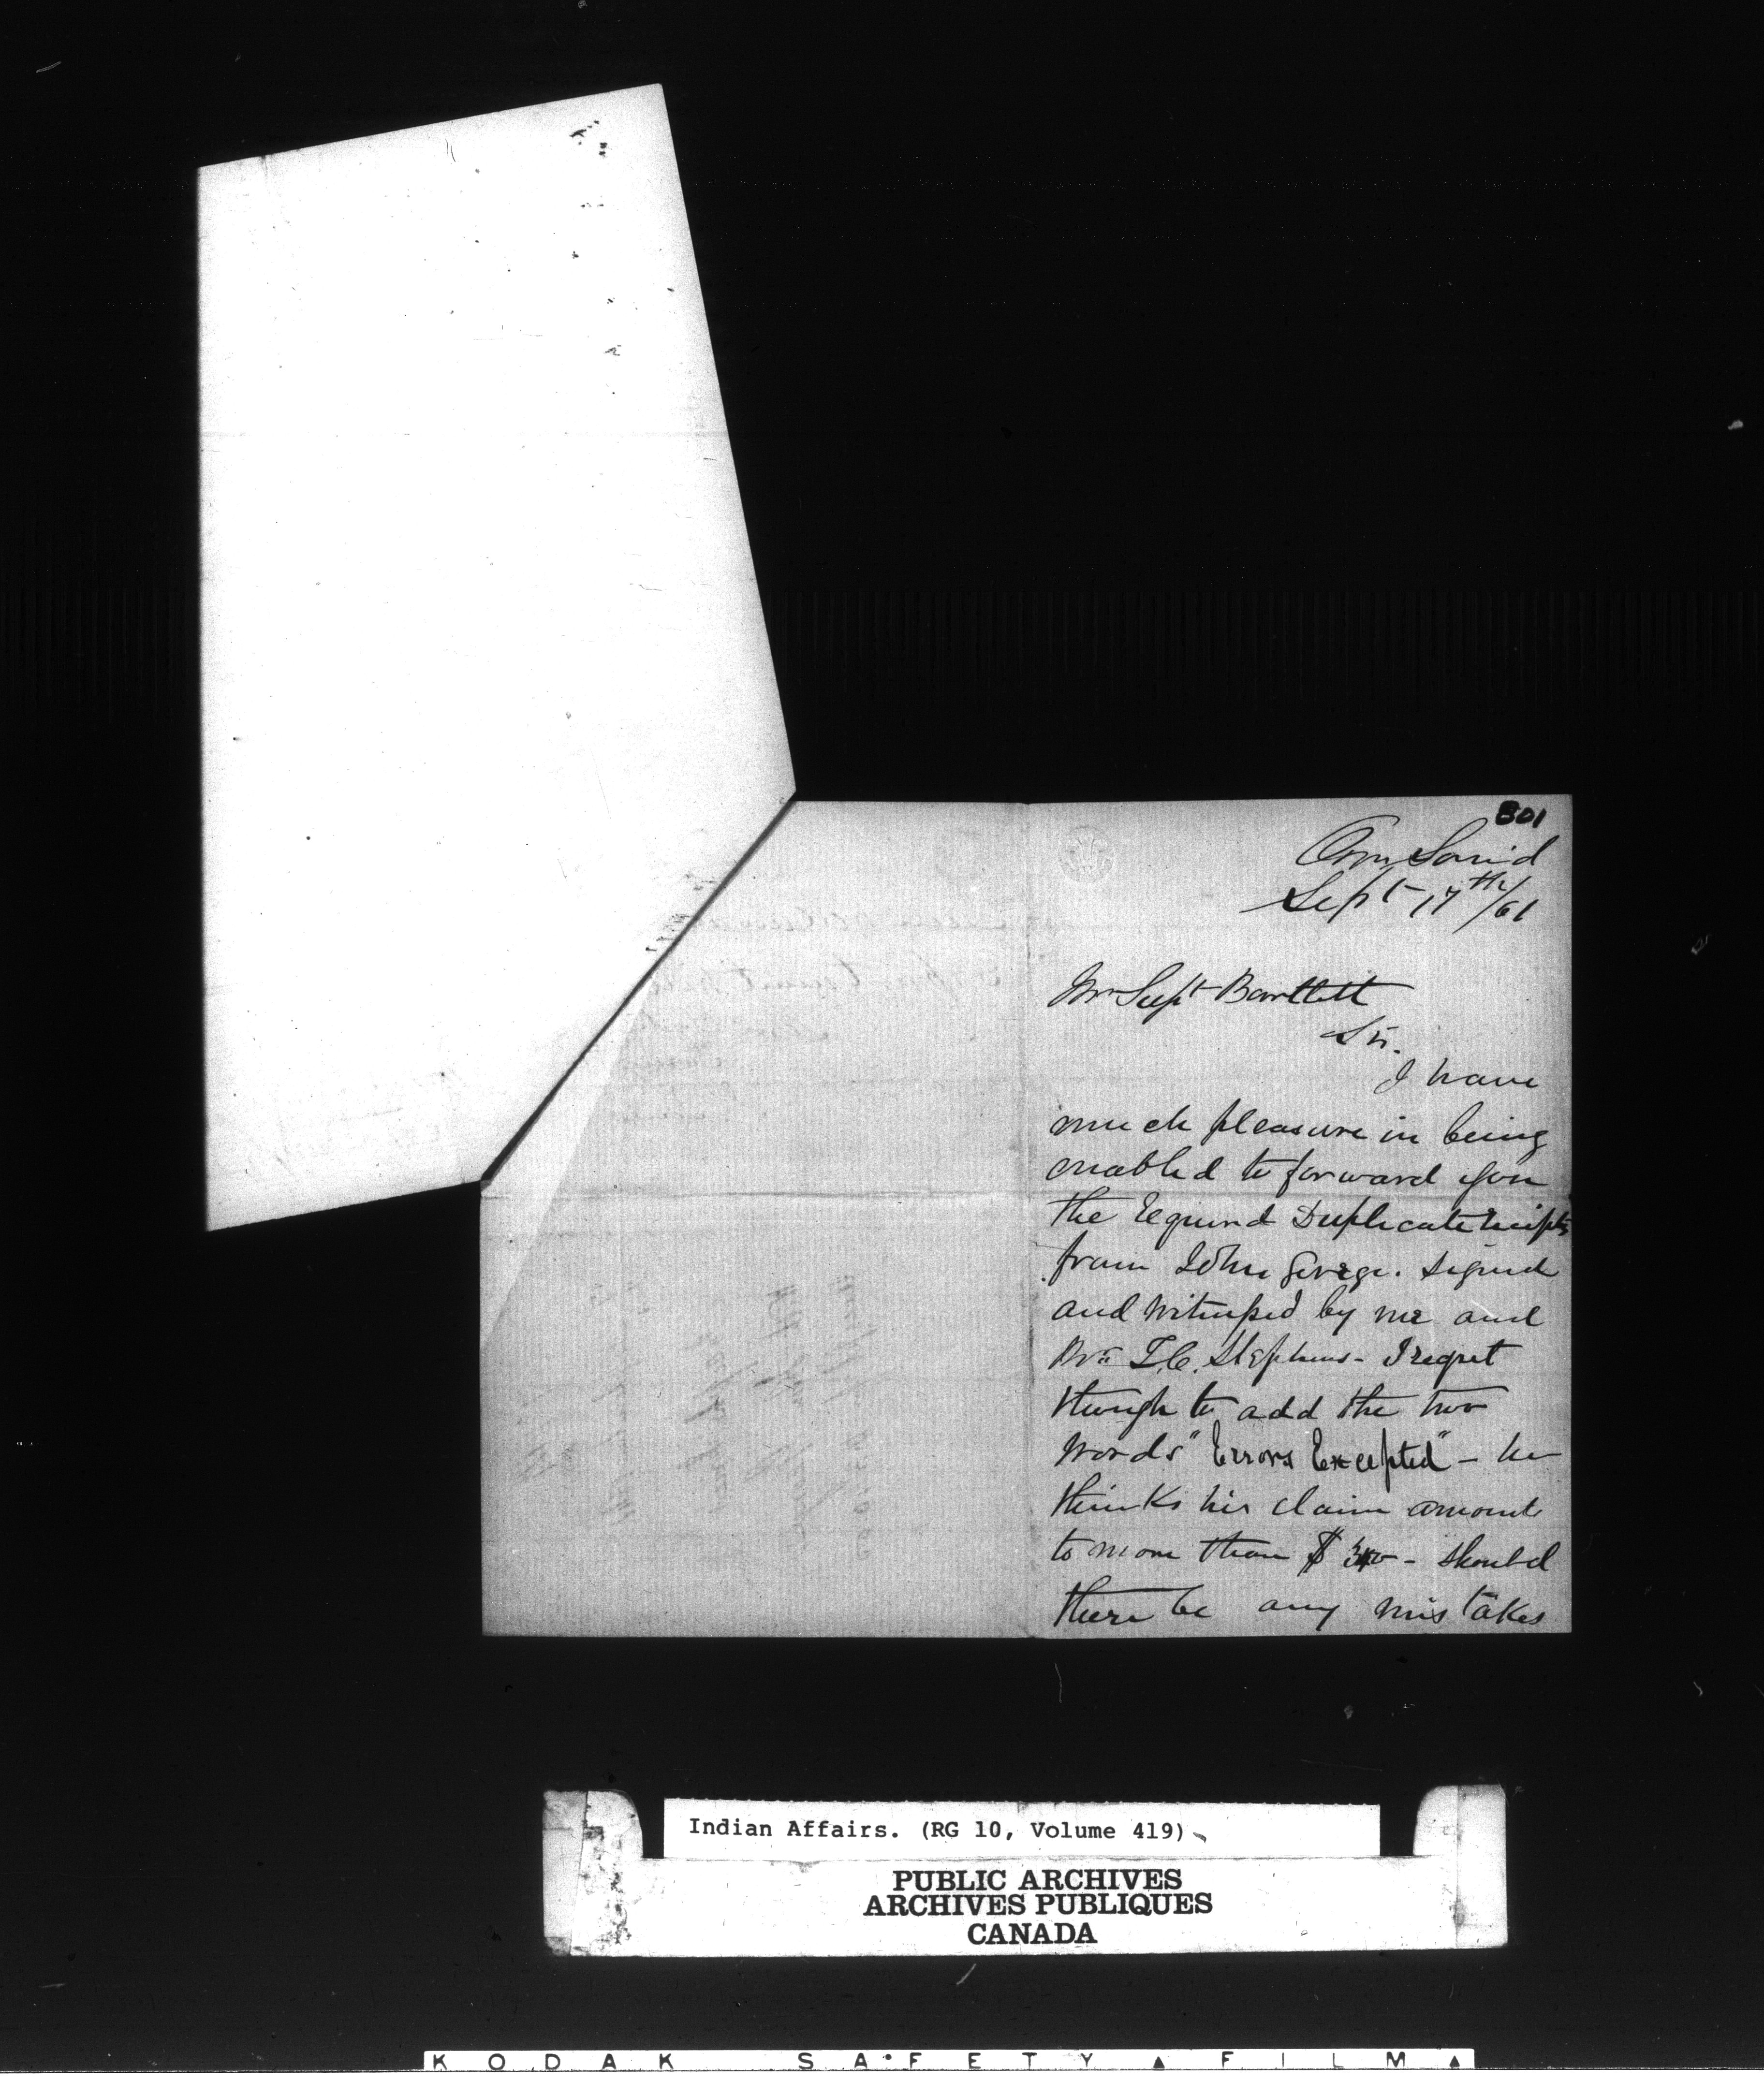 801
Owen Sound
Sept 17th/61
Mr Supt Bartlett
Sir.
I have
much pleasure in being
enabled to forward you
the required Duplicate receipts
from John George. signed
and witnessed by me and
Mr T.C. Stephens - I regret
though to add the two
words "Errors Excepted" - he
thinks his claim amounts
to more than $ - should
there be any mistakes
Indian Affairs. (RG 10, Volume 419)
PUBLIC ARCHIVES
ARCHIVES PUBLIQUES
CANADA
KODAK SAFETY FILM